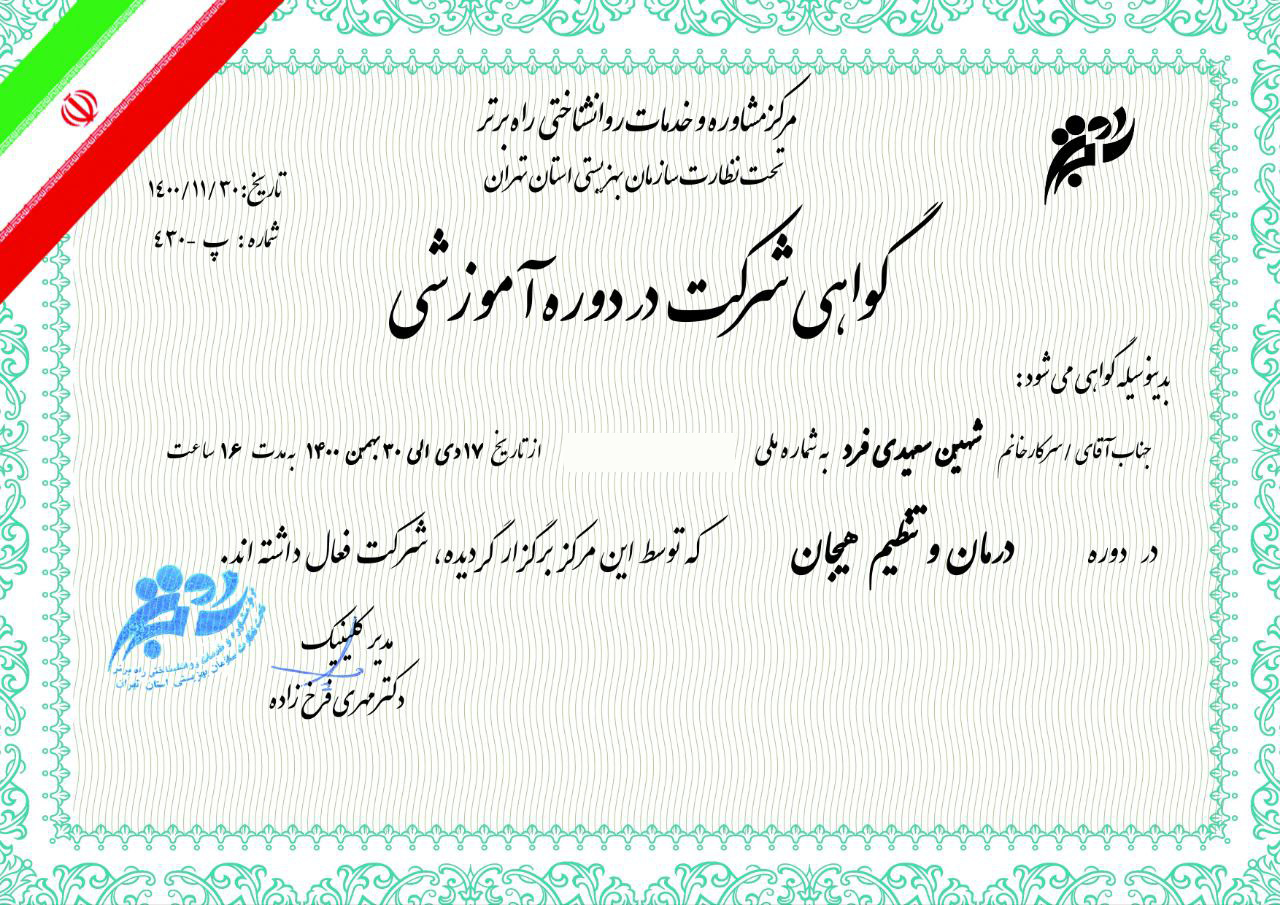 راه برتر
مرکز مشاوره و خدمات روانشناختی راه برتر
تحت نظارت سازمان بهزیستی استان تهران
تاریخ: ۱٤۰۰/۱۱/۳۰
شماره: پ -٤۳۰
گواهی شرکت در دوره آموزشی
بدینوسیله گواهی می شود:
جناب آقای / سرکار خانم شهین سعیدی فرد به شماره ملی از تاریخ ۱۷دی الی ۳۰ بهمن ۱۴۰۰ به مدت ۱۶ ساعت
در دوره درمان و تنظیم هیجان که توسط این مرکز برگزار گردیده، شرکت فعال داشته اند.
مدیر کلینیک
دکتر مهری فرخ زاده
راه برتر
مرکز مشاوره و خدمات روانشناختی راه برتر
تحت نظارت سازمان بهزیستی استان تهران